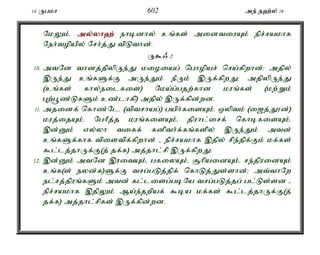 14 ருபமா 602 அந் நஹ்ல் 16
மேலும், அல்லாஹ் நாடினால் உங்கள் அனைவரையும் நிச்சயமாக
நேர்வழியில் சேர்த்து விடுவான்.
ருகூஃ 2
10. அவனே வானத்திலிருந்து மழையைப் பொழியச் செய்கிறான்; அதில்
இருந்து உங்களுக்கு அருந்தும் நீரும் இருக்கிறது; அதிலிருந்து
(உங்கள் கால்நடைகளை) மேய்ப்பதற்கான மரங்கள் (மற்றும்
புற்பூண்டுகளும் உண்டாகி) அதில் இருக்கின்றன.
11. அதனைக் கொண்டே, (விவசாயப்) பயிர்களையும், ஒலிவம் (ஜைத்தூன்)
மரத்தையும், பேரீத்த மரங்களையும், திராட்சைக் கொடிகளையும்,
இன்னும் எல்லா வகைக் கனிவர்க்கங்களில் இருந்தும் அவன்
உங்களுக்காக விளைவிக்கிறான் - நிச்சயமாக இதில் சிந்திக்கும் மக்கள்
கூட்டத்தாருக்கு(த் தக்க) அத்தாட்சி இருக்கிறது.
12. இன்னும் அவனே இரவையும், பகலையும், சூரியனையும், சந்திரனையும்
உங்கள்(ள் நலன்க)ளுக்கு வசப்படுத்திக் கொடுத்துள்ளான்; அவ்வாறே
நட்சத்திரங்களும் அவன் கட்டளைப்படியே வசப்படுத்தப் பட்டுள்ளன -
நிச்சயமாக இதிலும் ஆய்ந்தறியக் கூடிய மக்கள் கூட்டத்தாருக்கு(த்
தக்க) அத்தாட்சிகள் இருக்கின்றன.